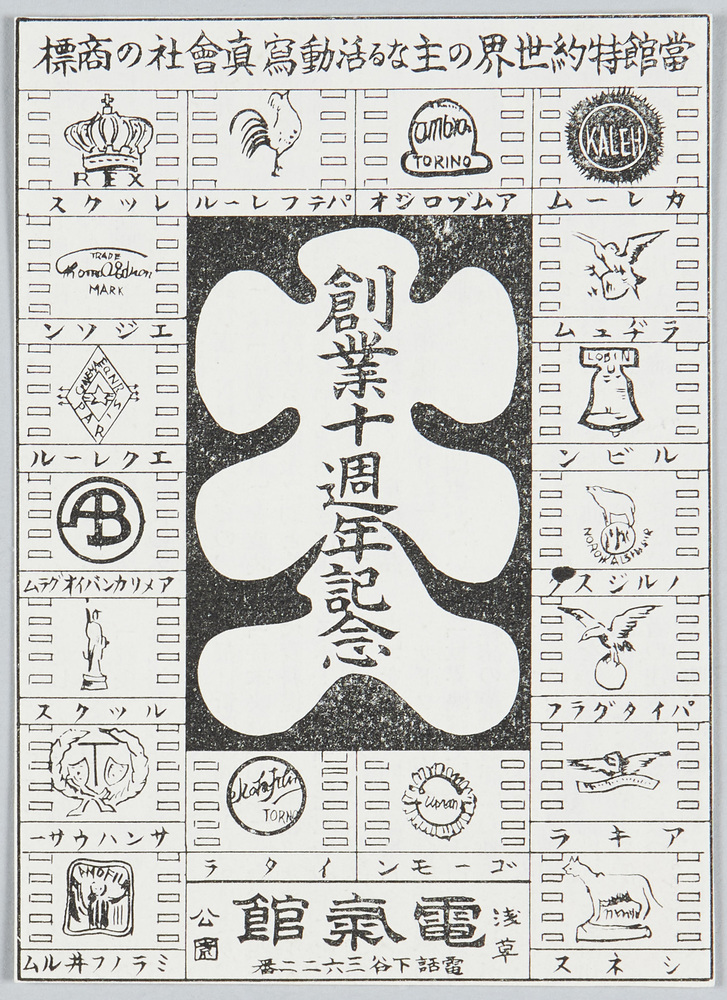 當館特約世界の主なる活動寫真會社の商標
KALEH
カレーム
ambra
TORINO
アムブロジオ
パテフレール
REX
レックス
ラヂュム
TRADE
MARK
エジソン
LOBIN
ルビン
PARI
エクレール
ノルジスク
AB
アメリカンバイオグラム
パイタグラフ
ルックス
アキラ
T
サンハウサー
シネス
ミラノフ井ルム
ゴーモン
TORNO
イタラ
創業十週年記念
淺草
公園
電氣館
電話下谷三六二二番